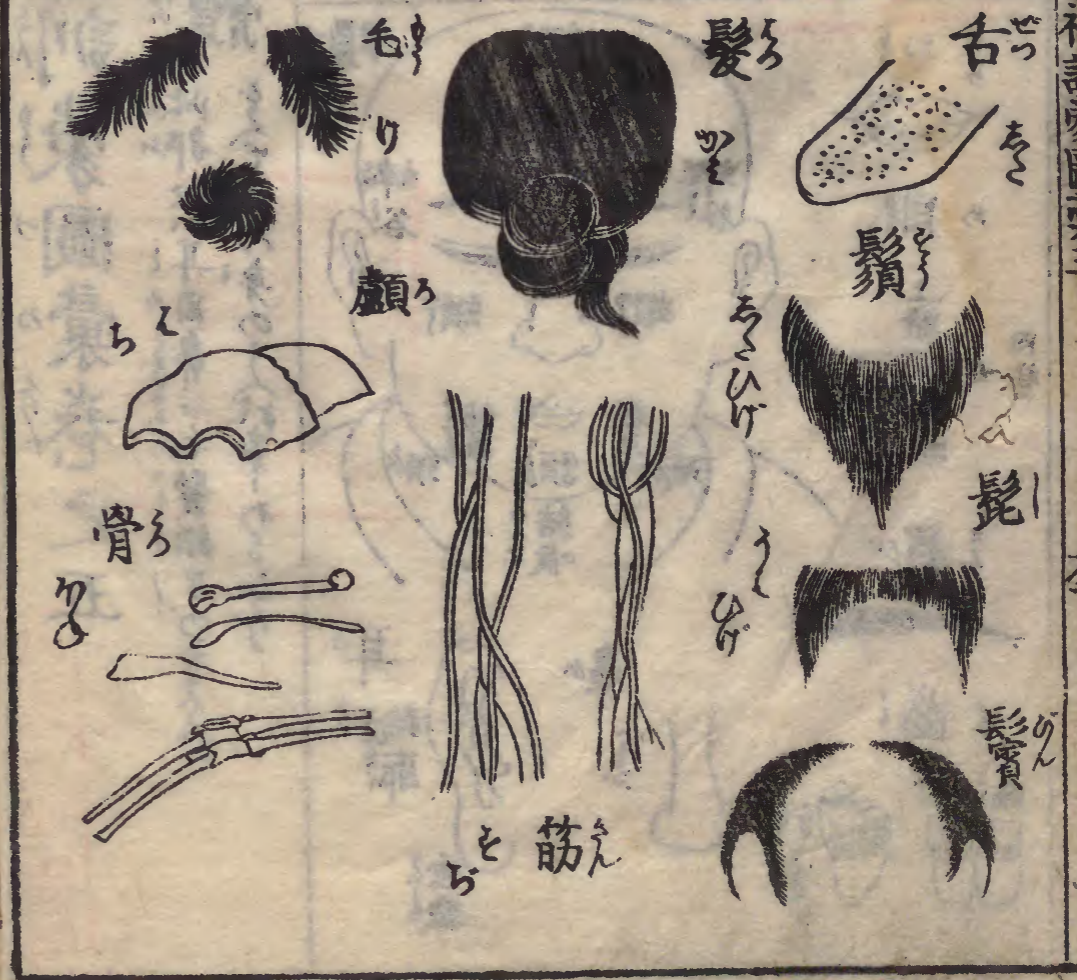 舌 ぜつ
した
鬚 しゆ
したひげ
髭 し
うはひげ
鬢 びん
髪 はつ
かみ
筋 きん
すぢ
毛 もう
け
顱 ろ
はち
骨 こつ
ほね